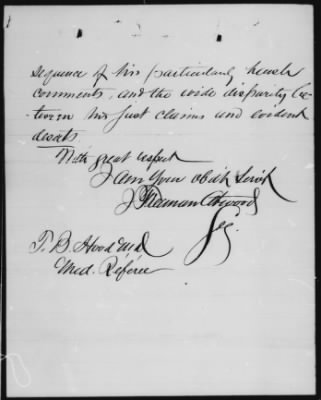 sequence of his particularly harsh
comments, and the wide disparity be-
-tween his just claims and evident
deserts
With great respect
I am Your obdt Servt
J Freeman Atwood
T. B. Hood M.D.
Med. Referee